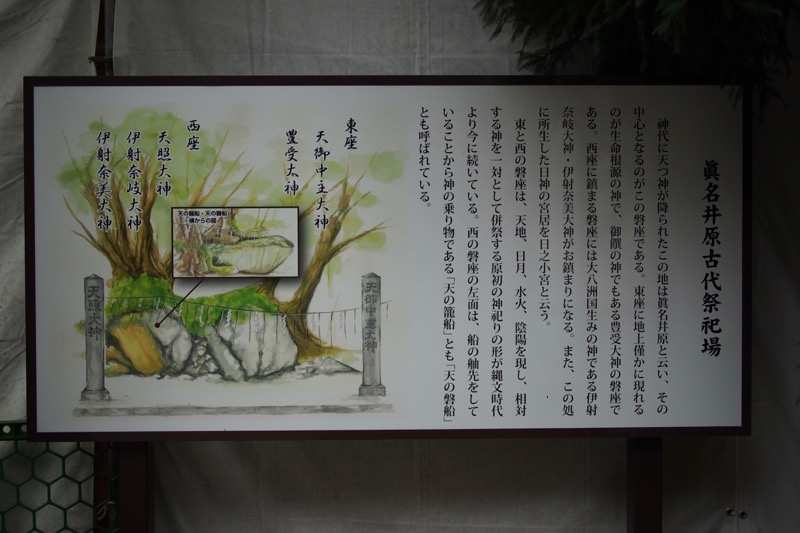 眞名井原古代祭祀場
神代に天つ神が降られたこの地は眞名井原と云い、その
中心となるのがこの磐座である。東座に地上僅かに現れる
のが生命根源の神で、御饌の神でもある豊受大神の磐座で
ある。西座に鎮まる磐座には大八洲国生みの神である伊射
奈岐大神・伊射奈美大神がお鎮まりになる。また、この処
に所生した日神の宮居を日之小宮と云う。
東と西の磐座は、天地、日月、水火、陰陽を現し、相対
する神を一対として併祭する原初の神祀りの形が縄文時代
より今に続いている。西の磐座の左面は、船の舳先をして
いることから神の乗り物である「天の籠船」とも「天の磐船」
とも呼ばれている。
東座
天御中主大神
豊受大神
西座
天照大神
伊射奈岐大神
伊射奈美大神
天の籠船・天の磐船
横からの図
天御中主大神
天照大神